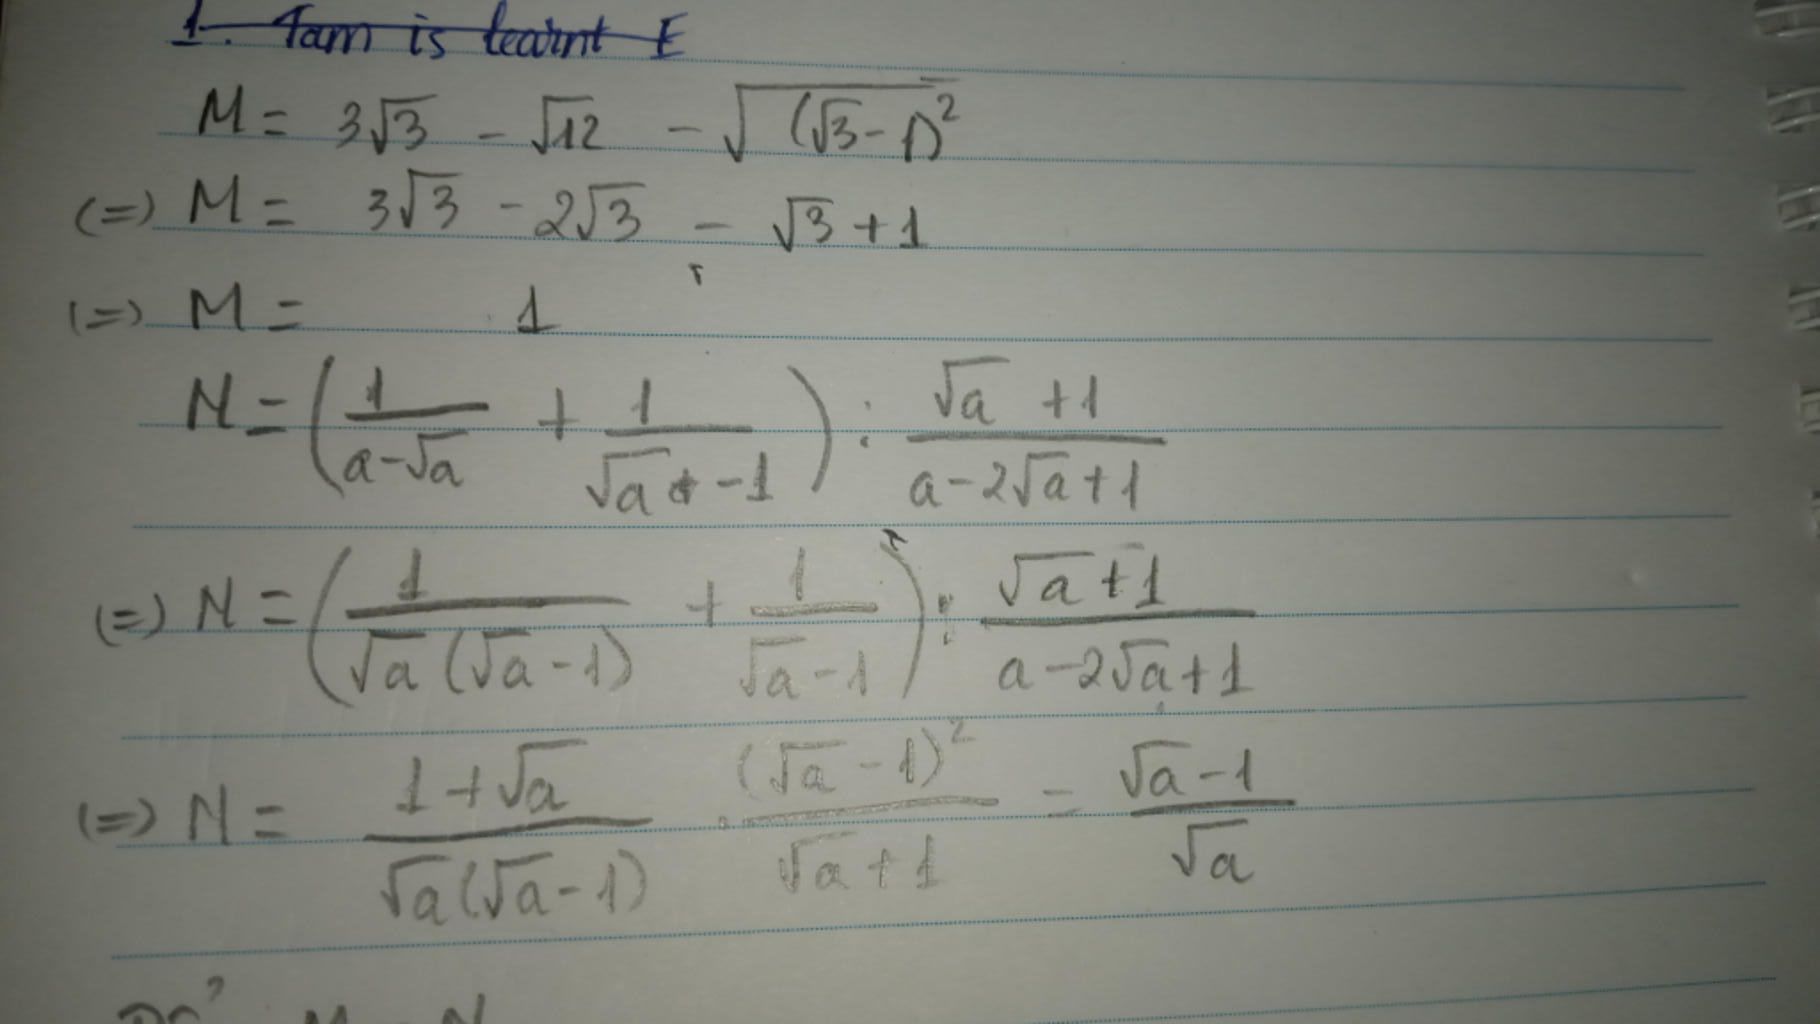 1. Tam is learnt E
M = 3√3 - √12 - √(√3-1)²
(=) M = 3√3 - 2√3 - √3 + 1
(=) M = 1
N = (1/(a-√a) + 1/(√a-1)) : (√a+1)/(a-2√a+1)
(=) N = (1/(√a(√a-1)) + 1/(√a-1)) : (√a+1)/(a-2√a+1)
(=) N = (1+√a)/(√a(√a-1)) . (√a-1)²/(√a+1) = (√a-1)/√a